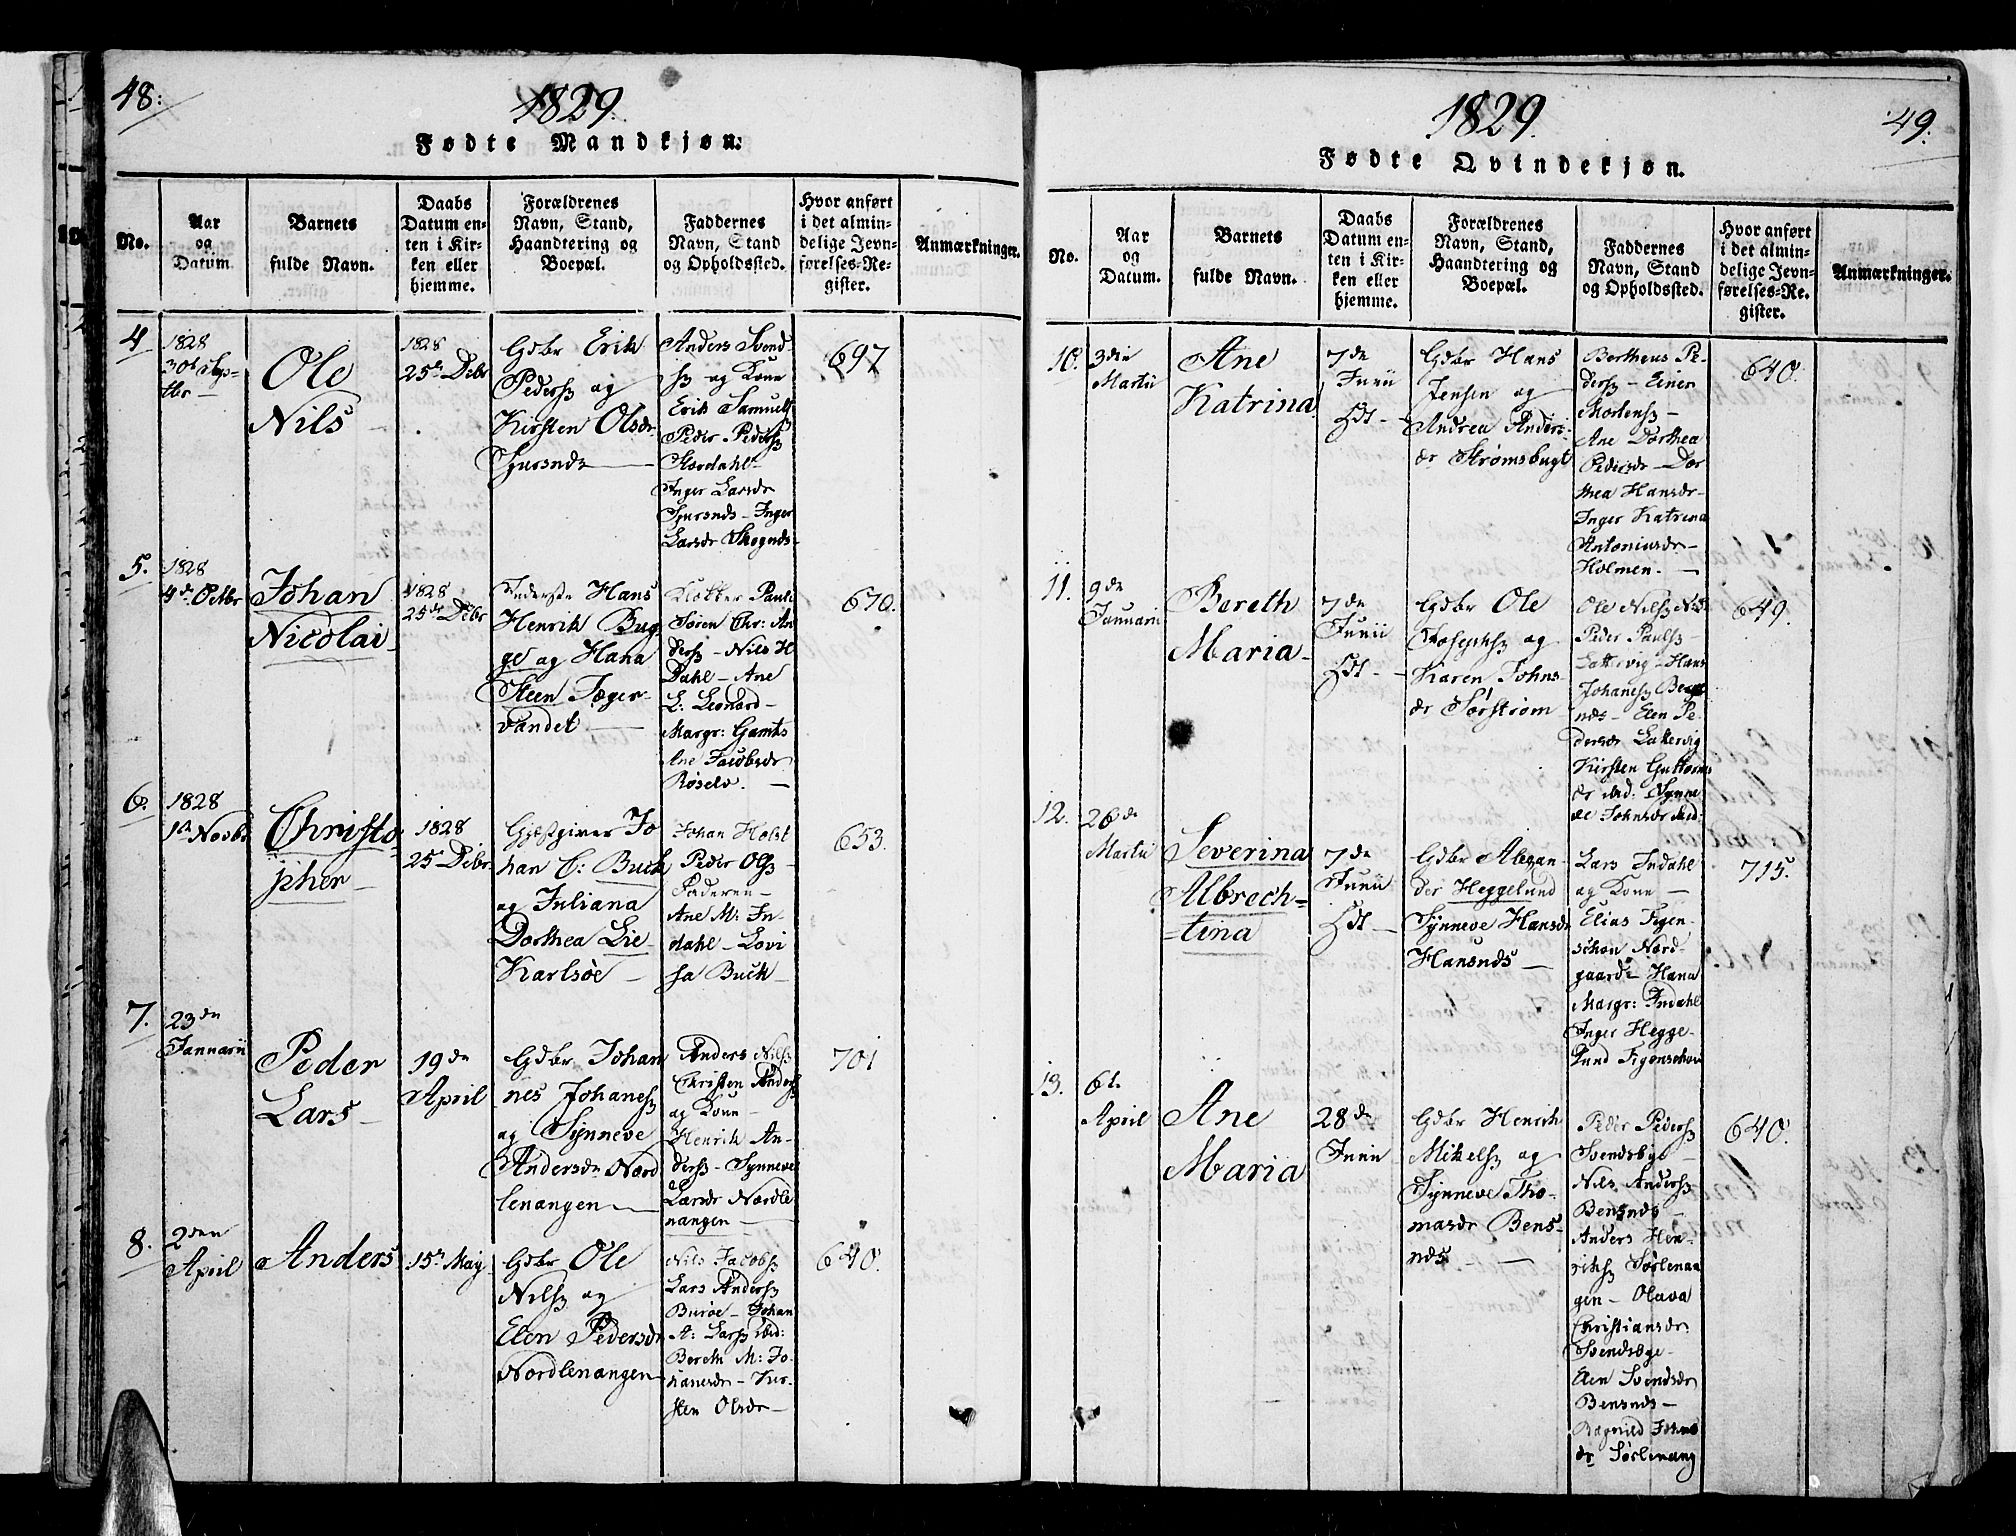 48:
1829.
Fødte Mandkjøn:
No.
Aar
og
Datum.
Barnets
fulde Navn.
Daabs
Datum en-
ten i Kir-
ken eller
hjemme.
Forældrenes
Navn, Stand,
Haandtering og
Boepæl.
Faddernes
Navn, Stand
og Opholdssted.
Hvor anført
i det almin-
delige Jevn-
førelses-Re-
gister.
Anmærkninger.
4
1828
30t
tbr
Ole
Nils
1828
25de Debr
Gdbr Erik
Peders og
Kirsten Olsdr
Anders Svend-
og Kone
Erik Samuels
Peder Peders
Størdahl
Inger Larsdr
Inger
Larsdr
697
5.
1828
4de Octbr
Johan
Nicolai
1828
25de Debr
Inderste Hans
Henrik Bug
ge og Hana
Steen Jæger-
vandet
Klokker
Søren Chr: An
ders - Nils H
Dahl - Ane
L: Leonard
Margr: Gamts
Ane Jacobsdr
Røselv.
670.
6.
1828
1de Novbr
Christo
pher
1828
25 Debr
Gjestgiver Jo
han C: Buck
og Juliana
Dorthea Lie
Karlsøe
Johan Holst
Peder Ols
Ane M: In
dahl - Lovi
sa Buck
653.
7.
23de
Januarii
Peder
Lars
19de
April
Gdbr Johan
nes Johanes
og Synneve
Andersdr Nord
lenangen
Anders Nils
Christen Anders
og Kone
Henrik An-
ders - Synneve
Larsdr Nordle
nangen
701
8.
2den
April
Anders
15de May
Gdbr Ole
Nils og
Elen Pedersdr
Nordlenangen
Nils Jacobs
Lars Anders
Burøe - Johan
A: Lars ibid:
Bereth M: Jo-
hanesdr - Kir-
sten Olsdr
640.
1829.
49.
Fødte Qvindekjøn.
No.
Aar
og
Datum.
Barnets
fulde Navn.
Daabs
Datum en-
ten i Kir-
ken eller
hjemme.
Forældrenes
Navn, Stand,
Haandtering og
Boepæl.
Faddernes
Navn, Stand
og Opholdssted.
Hvor anført
i det almin-
delige Jevn-
førelses-Re-
gister.
Anmærkninger.
10.
3die
Martii
Ane
Katrina
7de
Junii
Gdbr Hans
Jensen og
Andrea Anders
dr Strømsbugt
Bertheus Pe-
ders - Einer
Mortens
Ane Dorthea
Pedersdr - Dor
thea Hansdr
Inger Katrina
Antoniusdr
Holmen.
640.
11.
9de
Januarii
Bereth
Maria
7de
Junii
Gdbr Ole
Josephs og
Karen Johns
dr Sørstrøm
Ole Nils
Peder Pauls
Lattervig - Hans
Johanes
Elen Pe
dersdr Lattervig
Kirsten Guttorms
dr ibid: Synne
ve Johnsdr ibid
649.
12.
26de
Martii
Severina
Albrech=
=tina
7de
Junii
Gdbr Alexan-
der Heggelund
Synneve Hansdr
Hansnds
Lars Indahl
og Kone
Elias Figen-
schou Nord-
gaard - Hana
Margr: Indahl
Inger Hegge-
lund Figenschou
715.
13.
6te
April
Ane
Maria
28de
Junii
Gdbr Henrik
Mikels og
Synneve Tho-
masdr Bens-
nds
Peder Peders
Svendsbye
Nils Anders
Bensnds
Anders Hen-
riks Sørlenan
gen - Olava
Christiansdr
Elen Svendsdr
Bensnds
Ragnild Johns
dr Sørlenang
640.